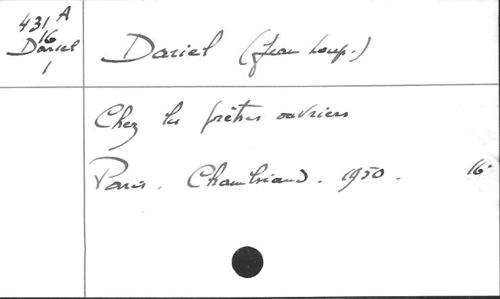 431 A
16
Dariel
1
Dariel (Jean Loup.)
Chez les prêtres ouvriers
Paris. Chambriand. 1950. 16°